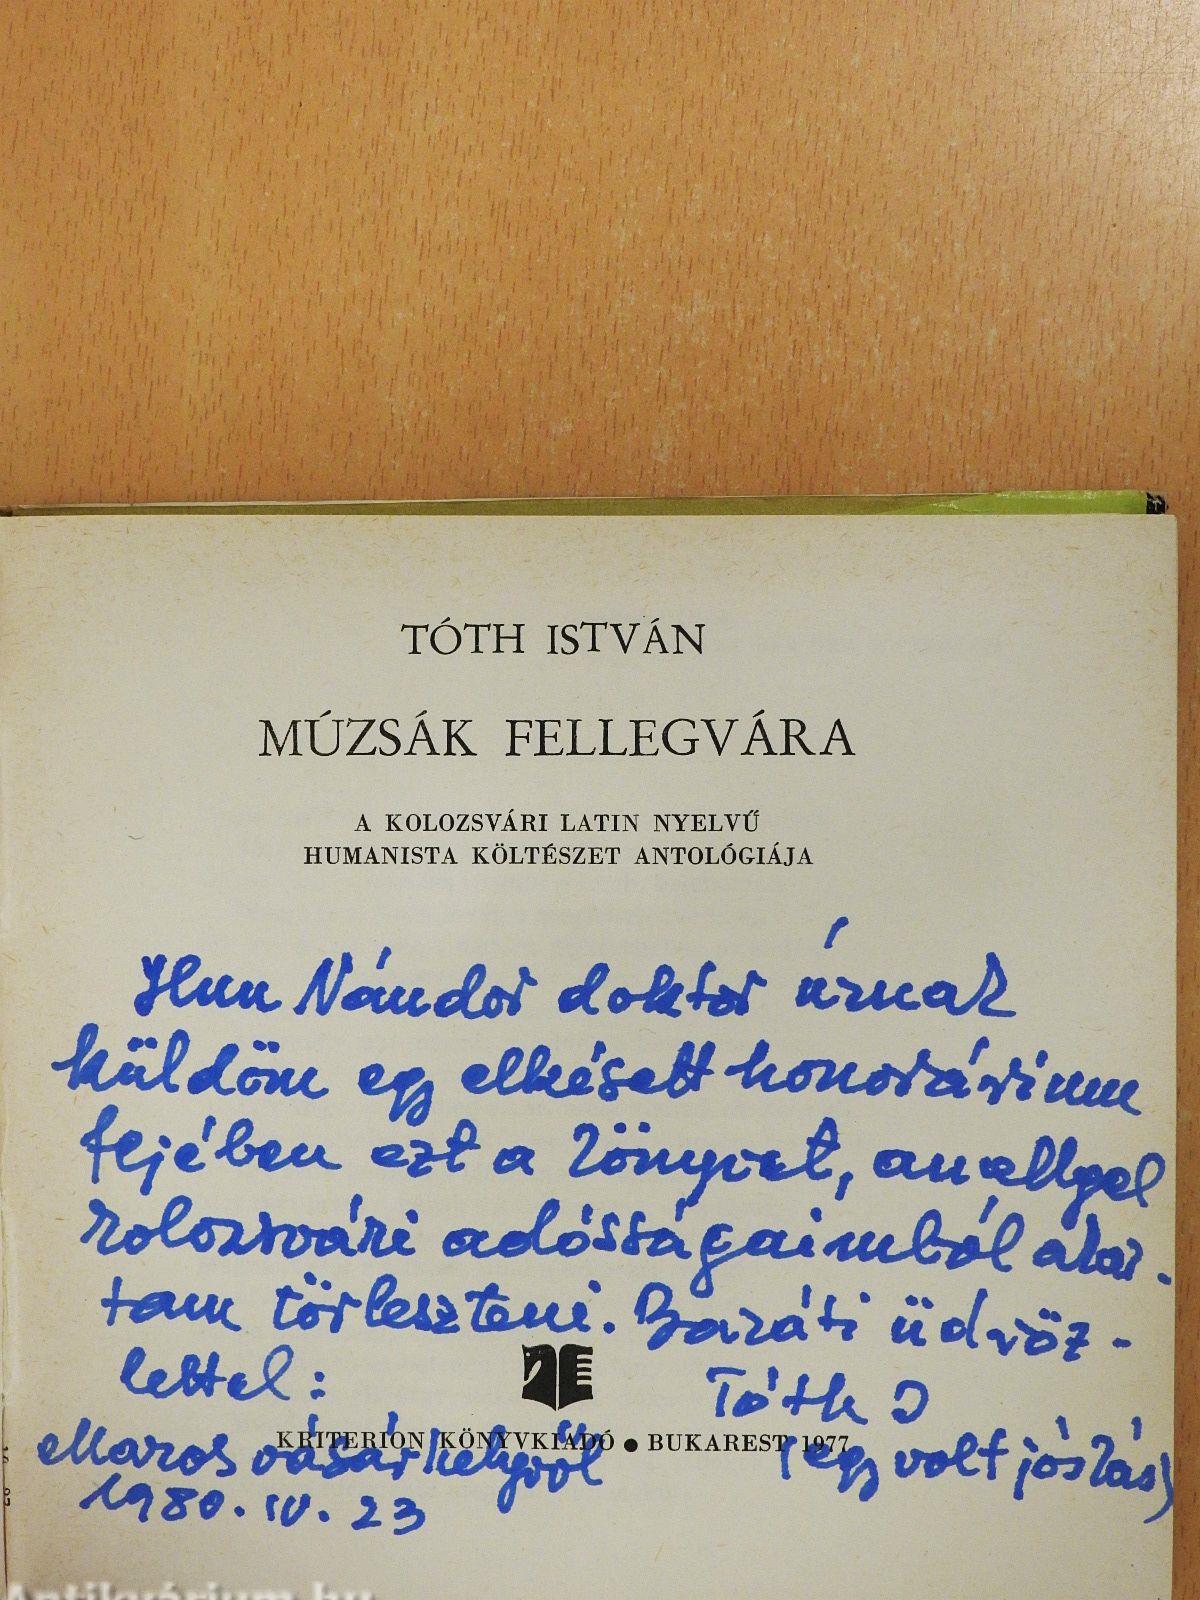 TÓTH ISTVÁN
MÚZSÁK FELLEGVÁRA
A KOLOZSVÁRI LATIN NYELVŰ
HUMANISTA KÖLTÉSZET ANTOLÓGIÁJA
Nándor doktor úrnak
küldöm egy elkésett honorárium
fejében ezt a könyvet, amellyel
kolozsvári adósságaimból akar-
tam törleszteni. Baráti üdvöz-
lettel:
Tóth I
KRITERION KÖNYVKIADÓ ● BUKAREST 1977
Marosvásárhelyről (egy volt jósiás)
1980. IV. 23
Antikvárium.hu